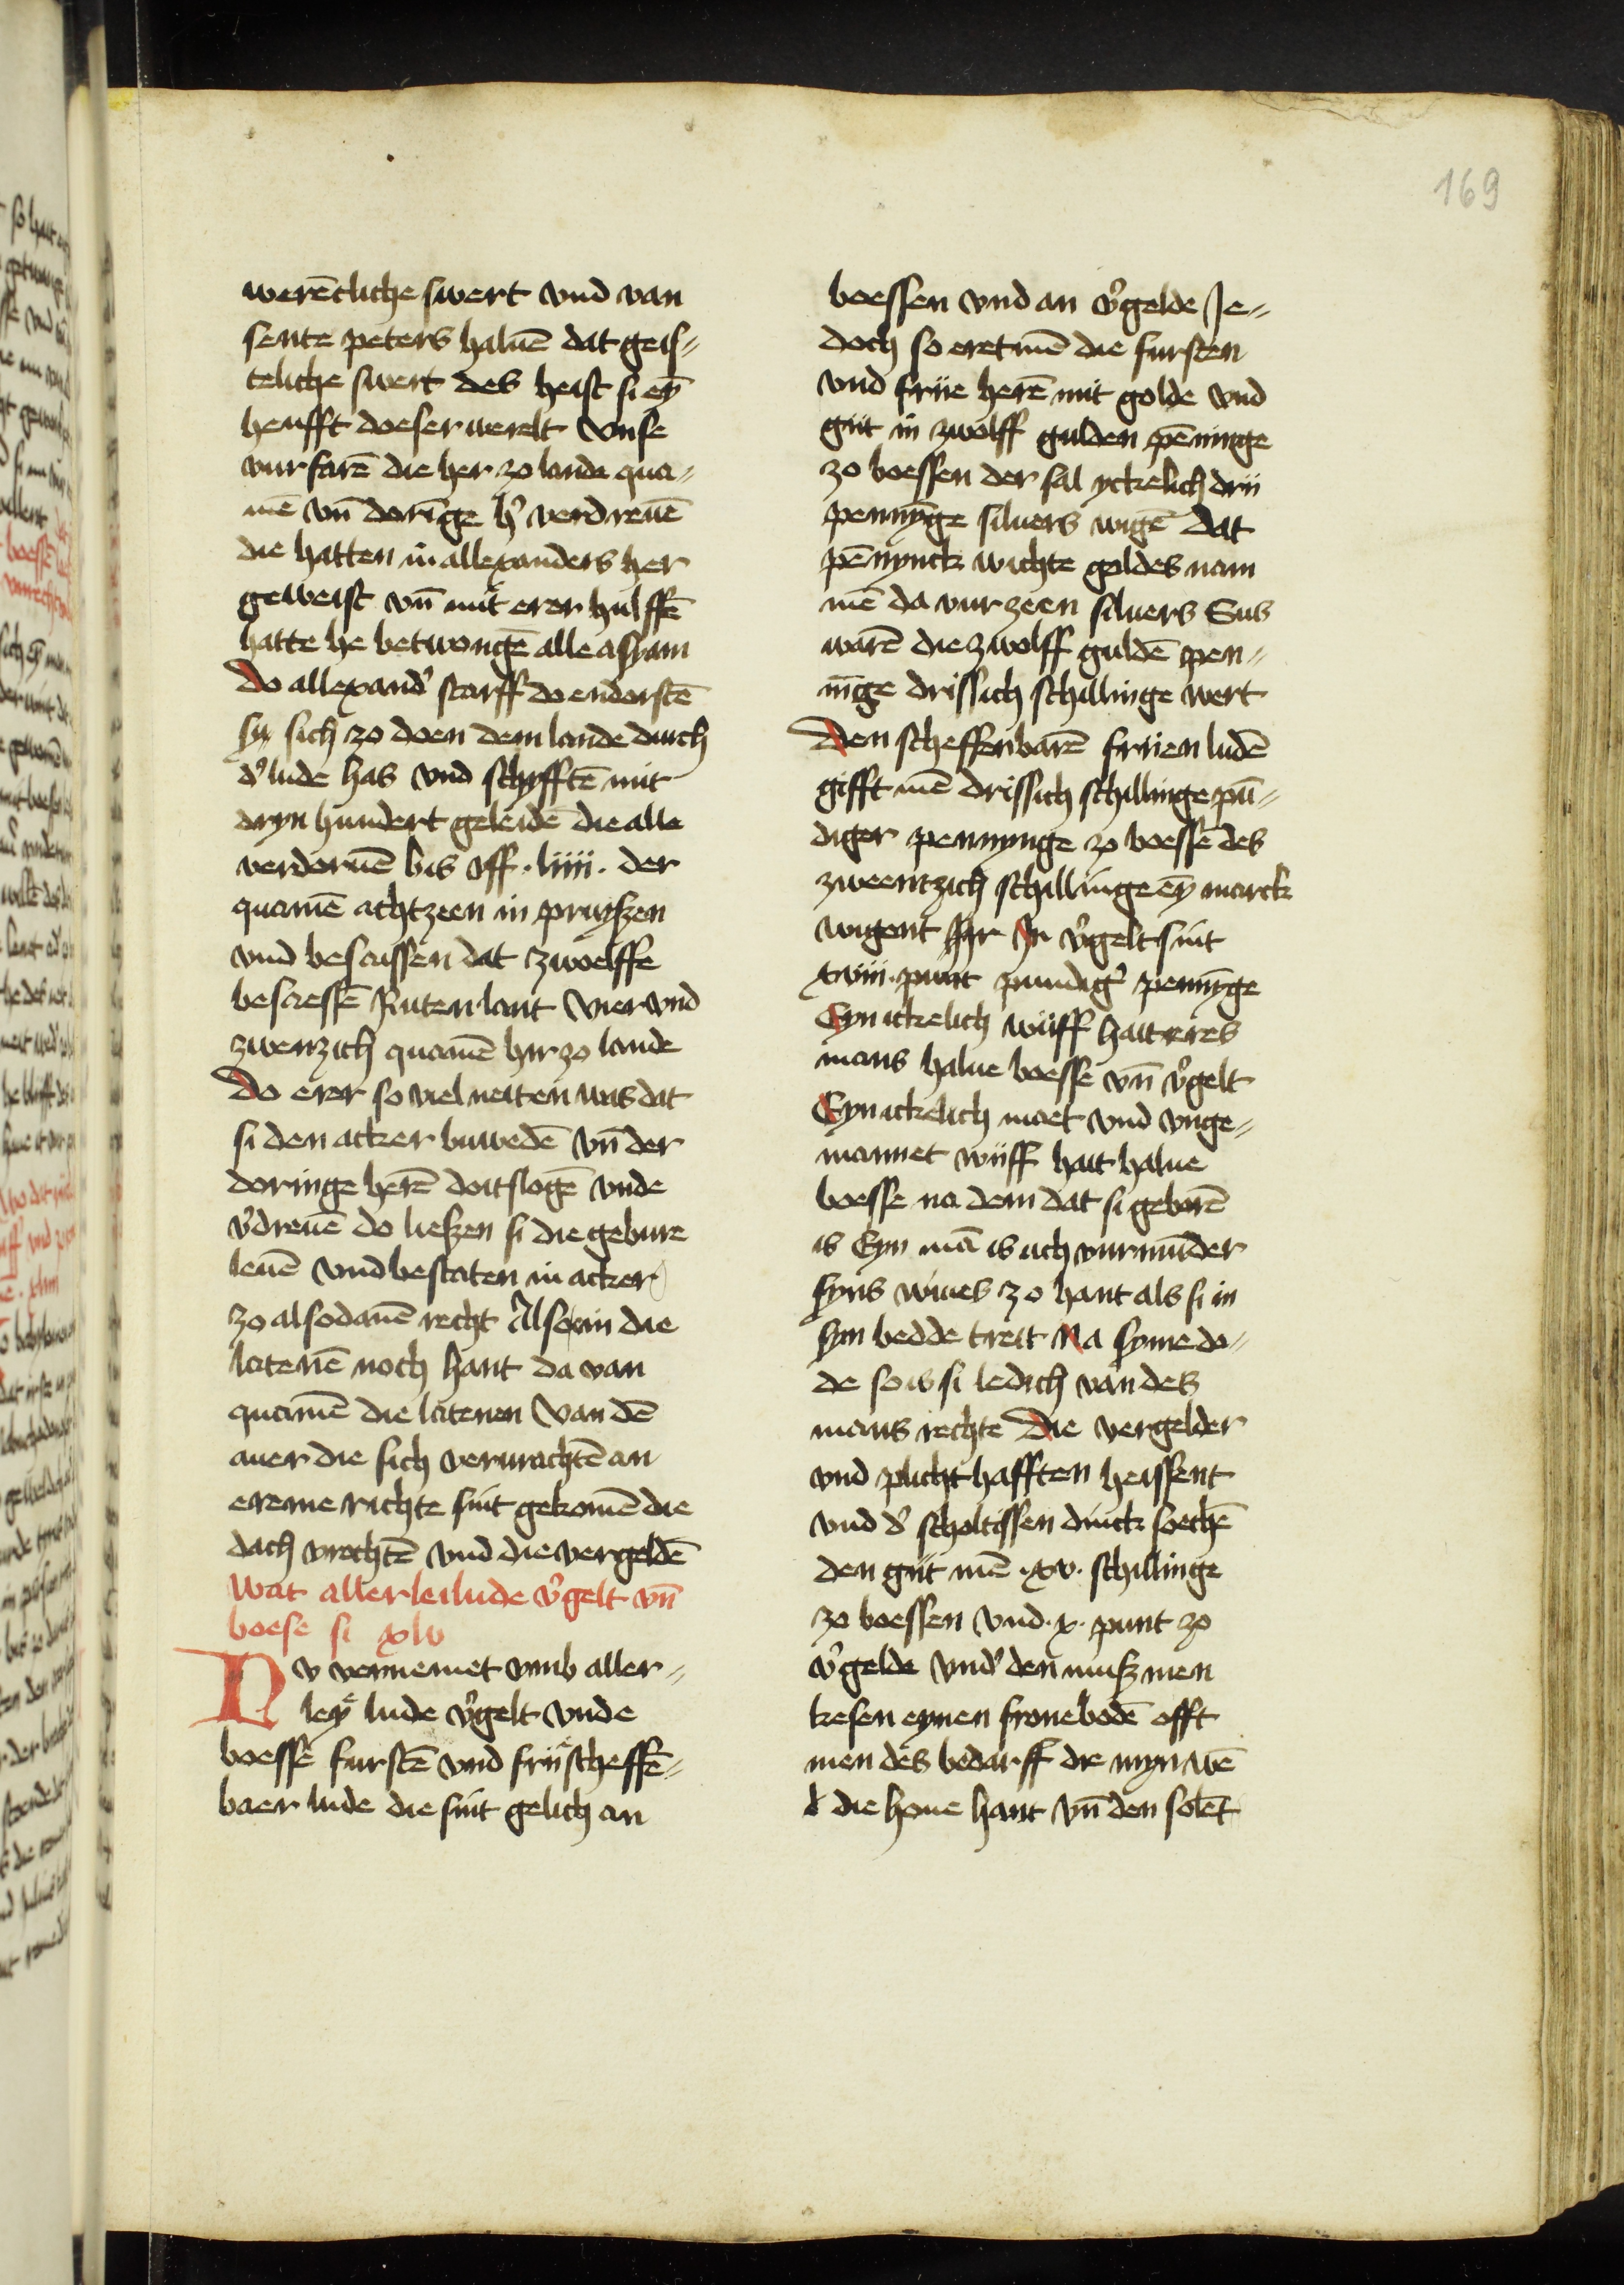 169
werētliche swert vnd van
sente peters haluē dat geis⸗
teliche swert des heist si eȳ
heufft doeser werelt Vnse
vurfarē die her zo lande qua⸗
mē vn̄ doringe h' verdreuē
die hatten in allexanders her
geweist vn̄ mit erer hulffē
hatte he betwongē alle asyam
Do allexand' starff do endorstē
sy sich zo doen dem lande durch
d' lude has vnd schyfftē mit
dryn hundert geleidē die alle
verdoruē bis vff · liiii · der
quamē achtzeen in pruyszen
vnd besaissen dat zwoelffe
besaessē Ruten lant Vier vnd
zwenzich quamē hir zo lande
Do erer so viel neit en was dat
si den acker buwedē vn̄ der
doringe herē doitslogē vnde
v'dreuē do lieszen si die gebure
leuē vnd bestaten in acker
zo alsodanē recht Also in die
latenē noch hant da van
quamē die latenen Van dē
auer die sich verwrachtē an
ereme richte sint gekomē die
dach wrochtē vnd die vergeldē
Wat allerleilude v'gelt vn̄
boese si xlv
Nv vernemet vmb aller⸗
ley lude v'gelt vnde
boessē furstē vnd frii scheffē⸗
baer lude die sint gelich an
boessen vnd an v'gelde Je⸗
doch so eret mē die fursten
vnd friie herē mit golde vnd
giit in zwolff gulden pēninge
zo boessen der sal yckelich drii
pennȳge siluers wigē dat
pēnynck wichte goldes nam
mē da vur zeen siluers Sus
warē die zwolff guldē pen⸗
nīge drissich schillinge wert
Den scheffenbarē friien ludē
gifft mē drissich schillinge pū⸗
diger pennynge zo boessē des
zweentzich schillinge eȳ marck
wigent Hyr In v'gelt sint
xviii · punt pundig' pennȳge
Eyn ickelich wiiff hait eres
mans halue boesse vn̄ v'gelt
Eyn ickelich maet vnd vnge⸗
mannet wiiff hait halue
boesse na dem dat si geborē
is Eyn mā is uch vurmūder
syns wiues zo hant als si in
syn bedde treit Na syme do⸗
de so is si ledich van des
mans rechte Die vergelder
vnd plichthafften heissent
vnd d' scholtissen dinck soechē
den giit mē · xv · schillinge
zo boessen vnd · x · punt zo
v'gelde vnd' den musz men
kesen eynen fronebodē offt
men des bedarff die myn wē
d die houe hant vn̄ den solēt